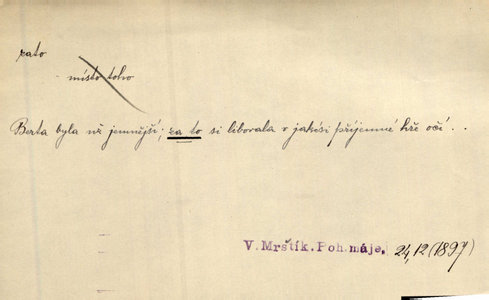 zato
místo toho
Berta byla už jemnější; za to si libovala v jakési příjemné hře očí . .
V. Mrštík. Poh. máje, 24,12 (1897)